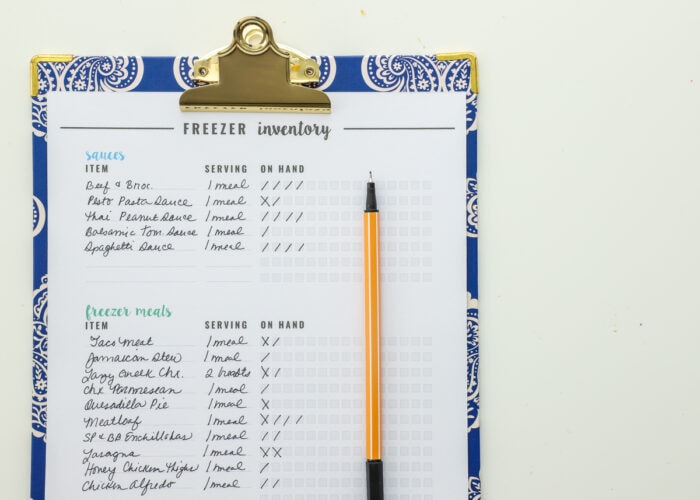 FREEZER inventory
sauces
ITEM SERVING ON HAND
Beef & Broc. 1 meal ////
Pesto Pasta Sauce 1 meal X/
Thai Peanut Sauce 1 meal ////
Balsamic Tom. Sauce 1 meal /
Spaghetti Sauce 1 meal ////
freezer meals
ITEM SERVING ON HAND
Taco Meat 1 meal X/
Jamaican Stew 1 meal /
Lazy Greek Chx. 2 X/
Chx Parmesean 1 meal /
Quesadilla Pie 1 meal X
Meatloaf 1 meal X///
SP & BB Enchilladas 1 meal //
Lasagna 1 meal XX
Honey Chicken Thighs 1 meal /
Chicken Alfredo 1 meal //